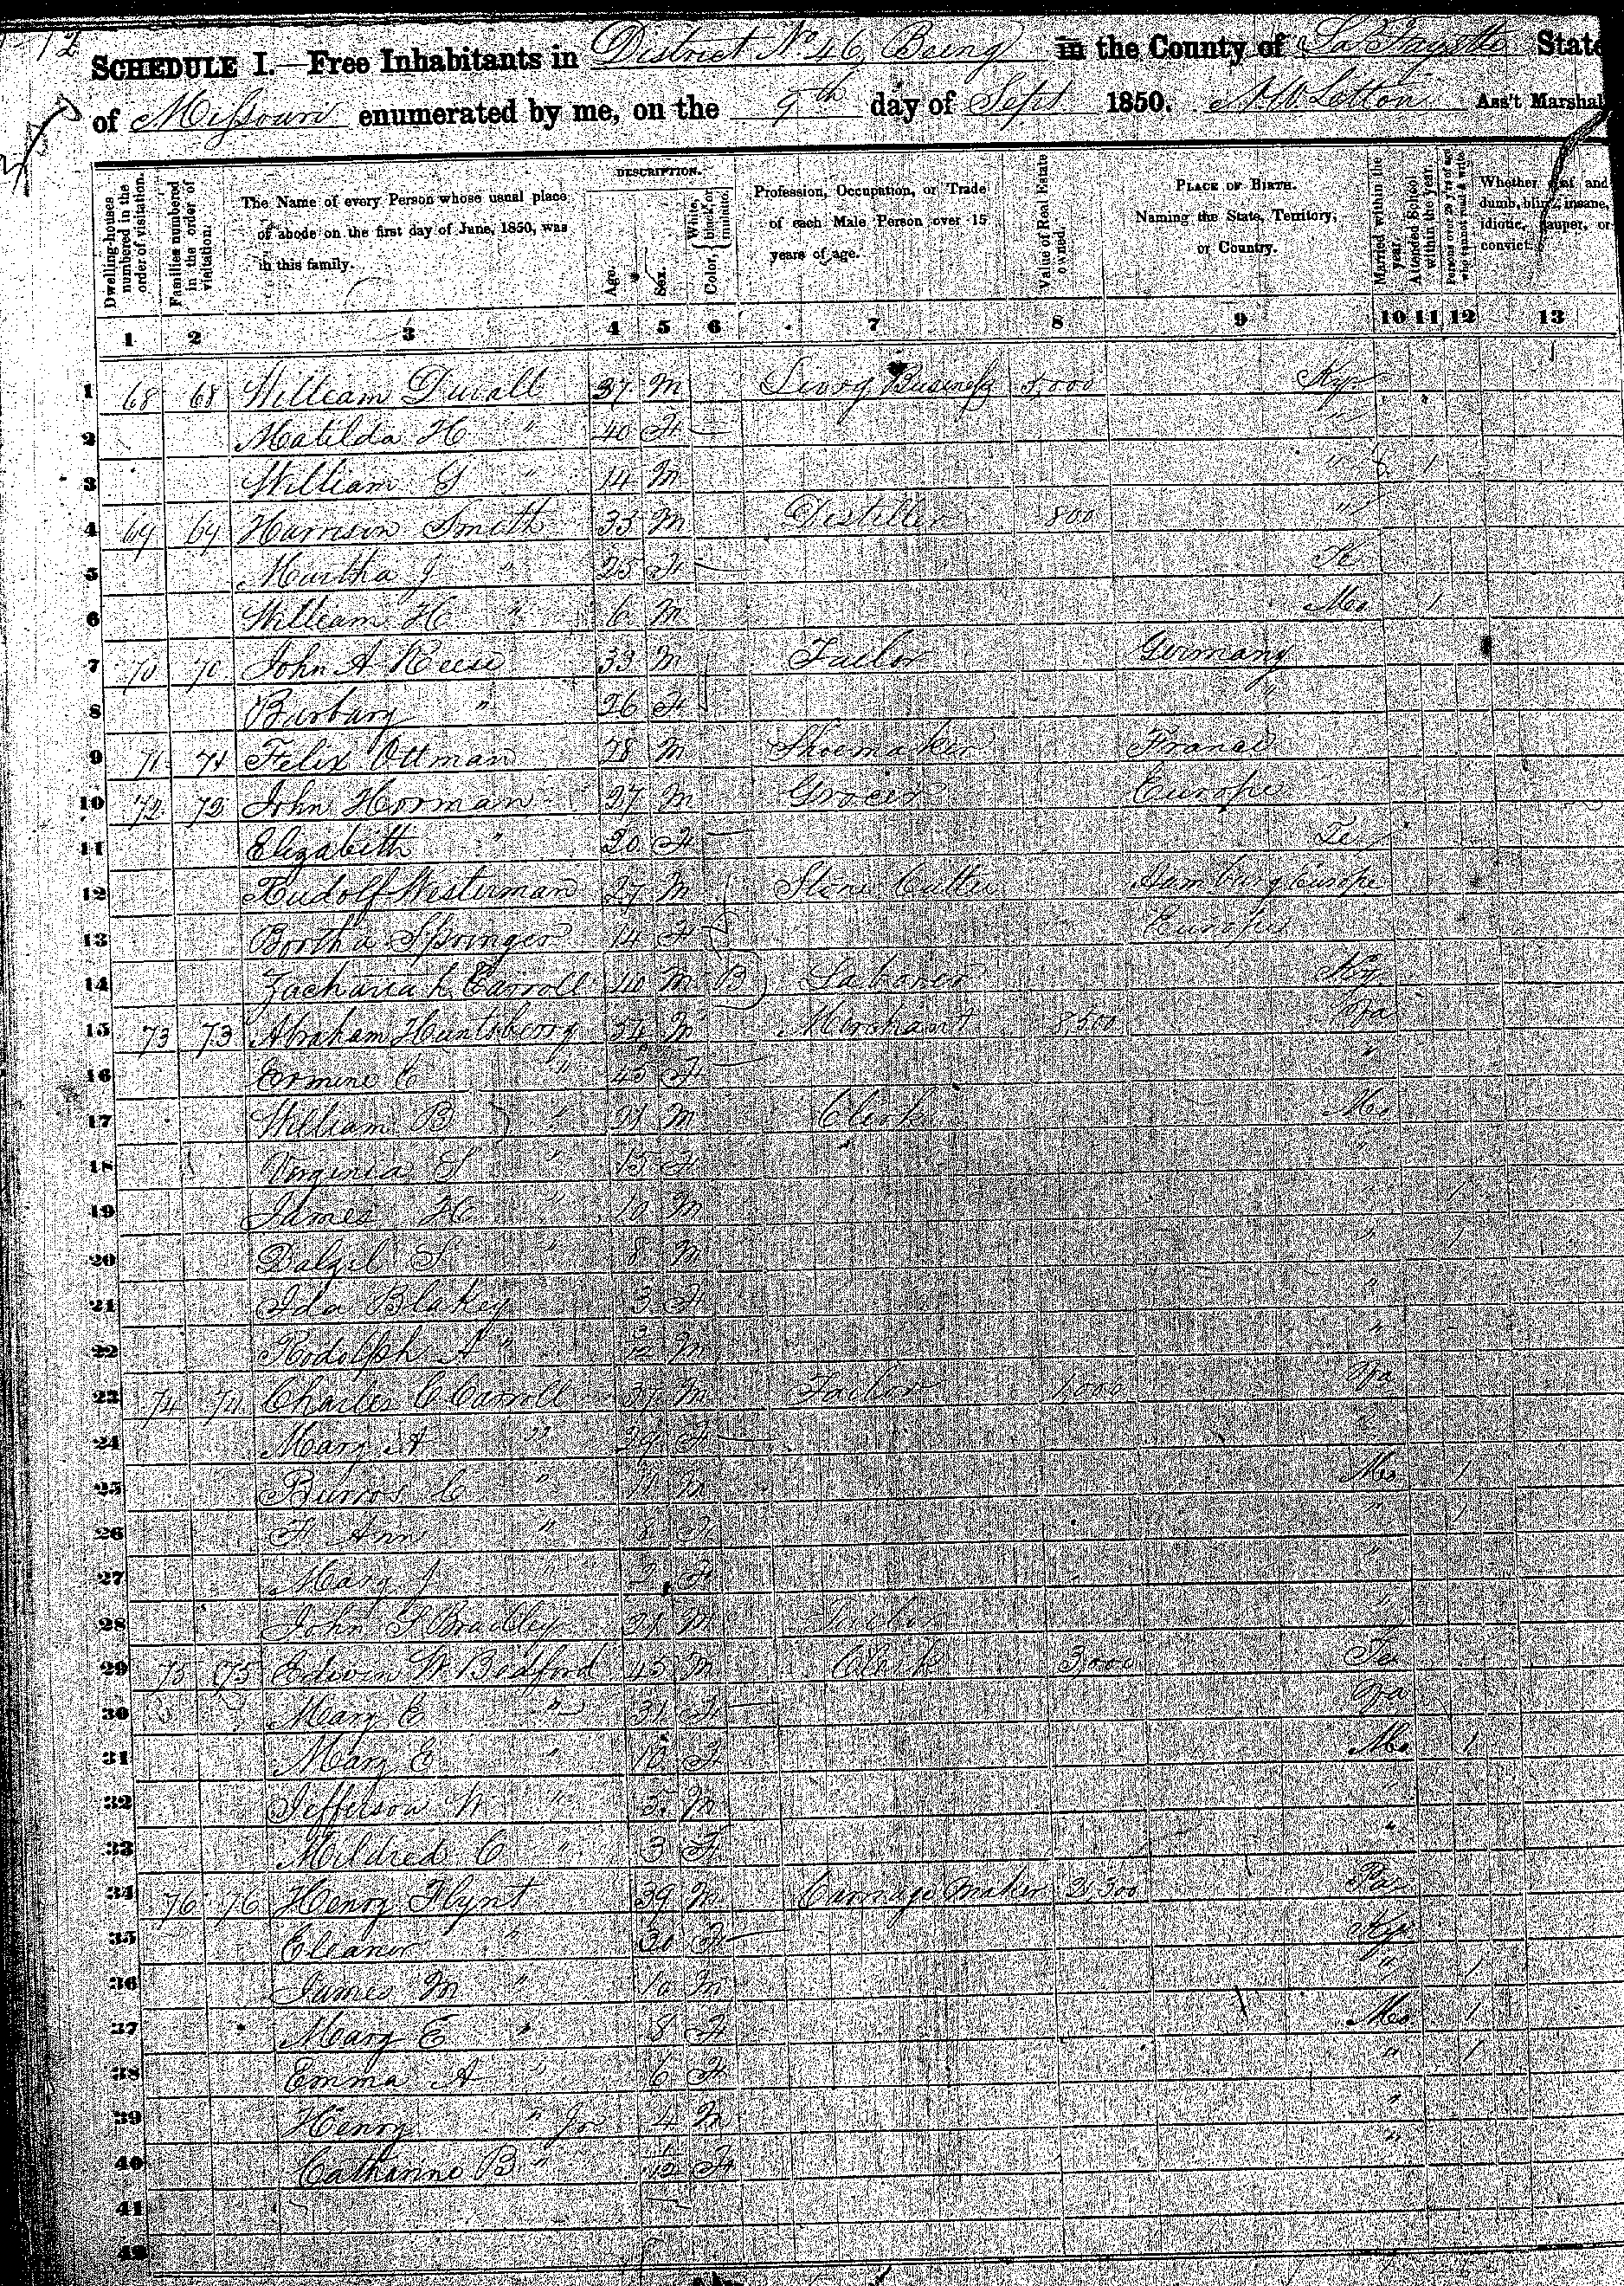 SCHEDULE I.—Free Inhabitants in District No 46 Being in the County of LaFayette State
of Missouri enumerated by me, on the 9th day of Sept 1850. Ass't Marshal
DESCRIPTION.
Dwelling-houses numbered in the order of visitation.
Families numbered in the order of visitation.
The Name of every Person whose usual place of abode on the first day of June, 1850, was in this family.
Age.
Sex.
Color, { White, black, or mulatto.
Profession, Occupation, or Trade of each Male Person over 15 years of age.
Value of Real Estate owned.
PLACE OF BIRTH. Naming the State, Territory, or Country.
Married within the year.
Attended School within the year.
Persons over 20 y'rs of age who cannot read & write
Whether deaf and dumb, blind, insane, idiotic, pauper, or convict.
1 2 3 4 5 6 7 8 9 10 11 12 13
1 68 68 William Duvall 37 M Livery Business 5,000 Ky
2 Matilda H " 40 F "
3 William " 14 M " 1
4 69 69 Harrison Smith 33 M Distiller 800 "
5 Martha J " 25 F Te
6 William H " 6 M Mo 1
7 70 70 John A Reese 33 M Tailor Germany
8 Barbary " 26 F "
9 71 71 Felix Ottman 28 M Shoemaker France
10 72 72 John Horman 27 M Grocer Europe
11 Elizabeth " 20 F Te
12 Rudolf Westerman 27 M Stone Cutter Hamburg Europe
13 Bertha Springer 14 F Europe
14 Zachariah Carroll 40 M B Laborer Ky
15 73 73 Abraham Huntsberry 54 M Merchant 8,500 Va
16 Ermine C " 45 F "
17 William B " 21 M Clerk Mo
18 Virginia S " 15 F "
19 James H " 10 M " 1
20 Dalzel S " 8 M " 1
21 Ida Blakey 3 F "
22 Rodolph A " M "
23 74 74 Charles C Carroll 37 M Tailor 1,000 Va
24 Mary A " 29 F "
25 Burros C " 11 M Mo 1
26 F Ann " 8 F " 1
27 Mary J 2 F "
28 John Bradley 21 M Tailor "
29 75 75 Edwin W Bedford 45 M Clerk 3,000 Te
30 Mary E " 31 F Va
31 Mary E " 10 F Mo 1
32 Jefferson W " 5 M "
33 Mildred C " 3 F "
34 76 76 Henry Flynt 39 M Carriage Maker 2,300 Pa
35 Eleanor " 30 F Ky
36 James M " 10 M " 1
37 Mary E " 8 F Mo 1
38 Emma A " 6 F " 1
39 Henry " Jr 4 M "
40 Catharine B " F "
41
42